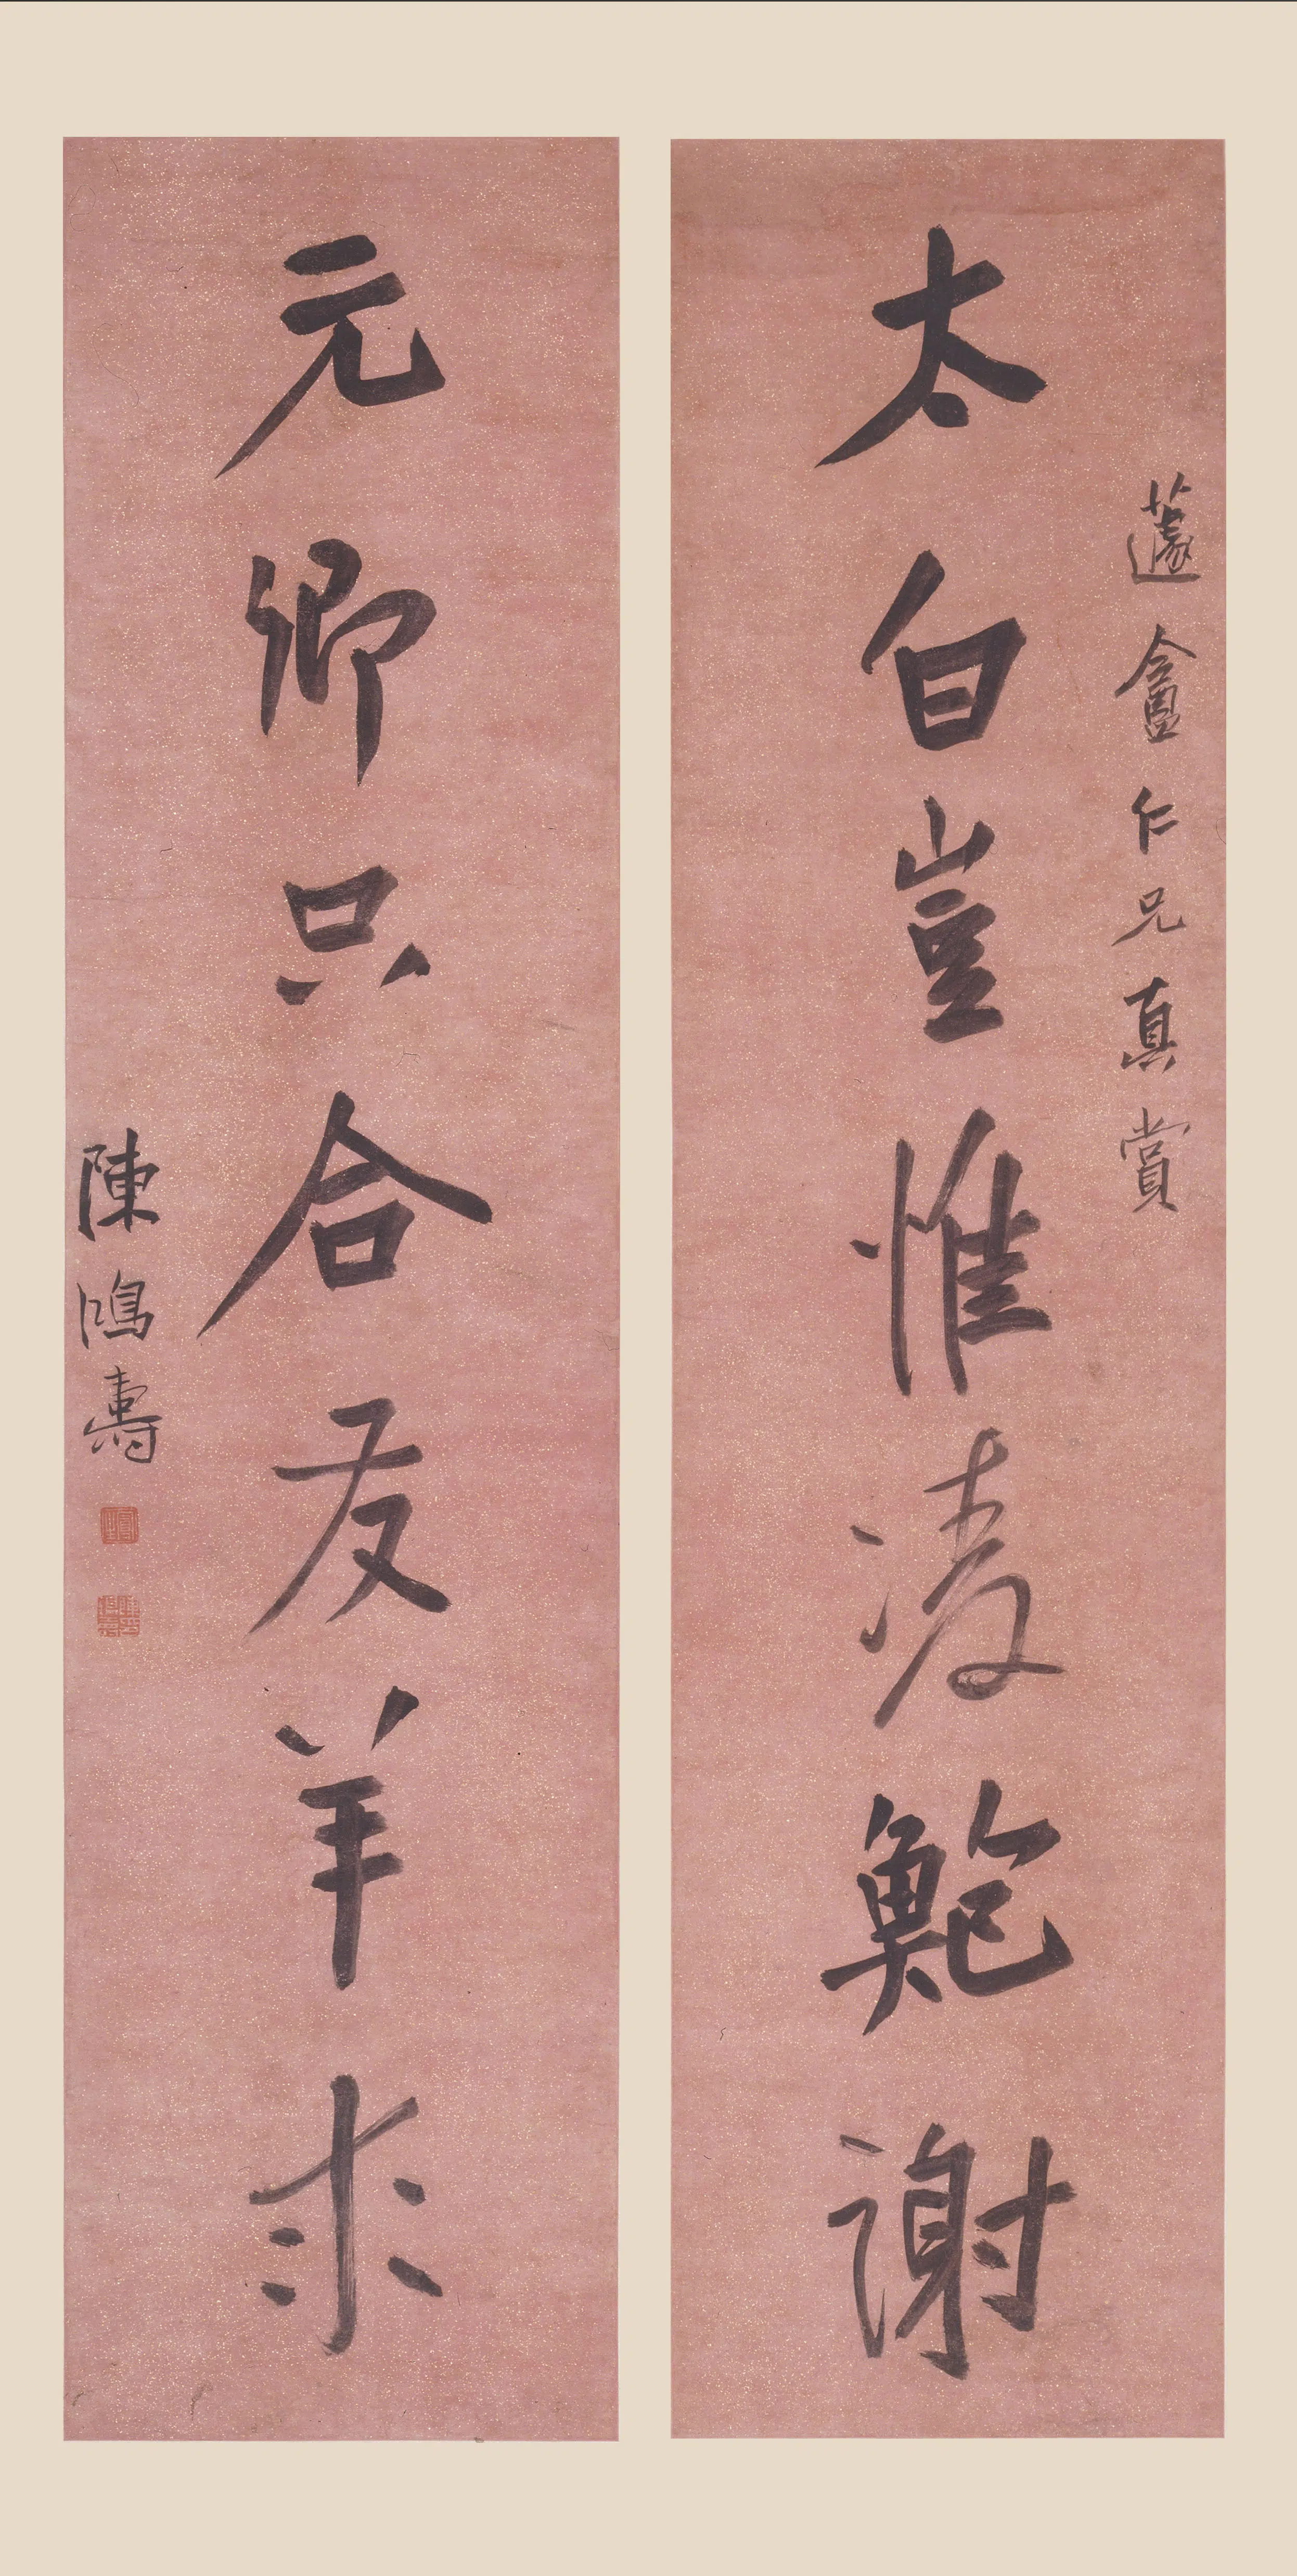 蘧盦仁兄真賞
太白豈惟凌鮑謝
元卿只合友羊求
陳鴻壽